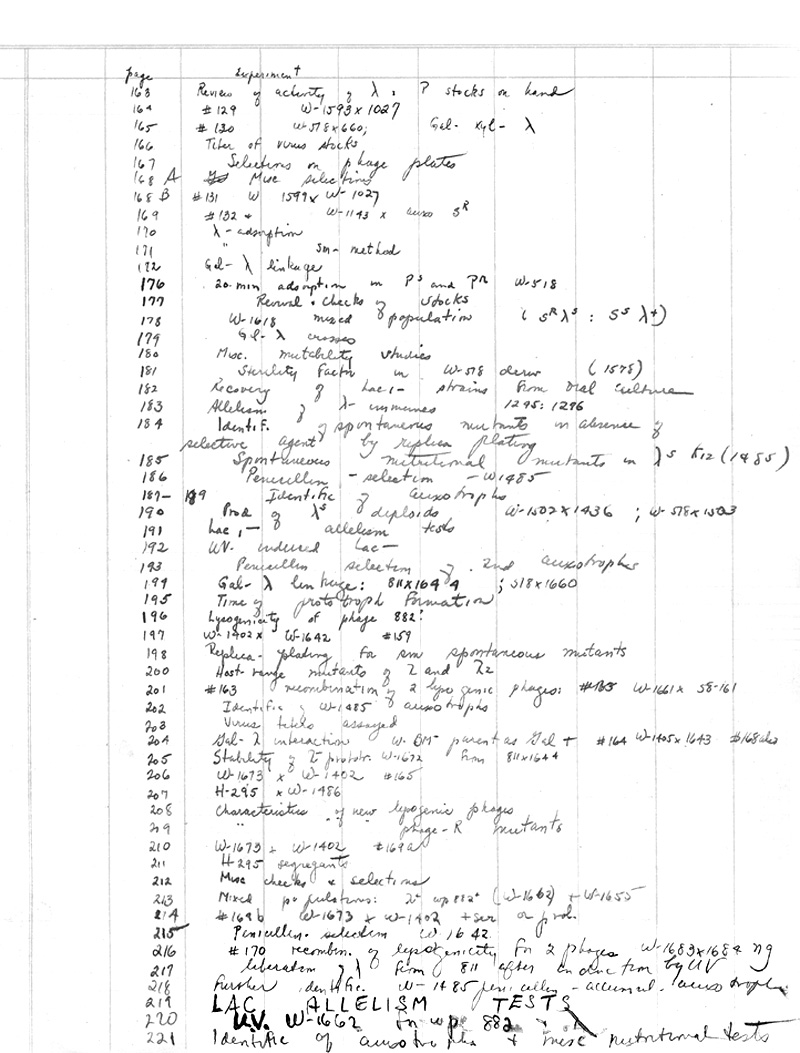 page Experiment
163 Review of activity of λ: P stocks on hand
164 #129 W-1593 x 1027
165 #130 W-518 x 660; Gal- Xyl- λ
166 Titer of virus stocks
167 Selections on phage plates
168 A Misc selections
168 B #131 W 1599 x W-1027
169 #132 * W-1143 x auxo S^R
170 λ-adsorption
171 " Sm- method
172 Gal- λ linkage
176 20 min adsorption on P^S and P^R W-518
177 Revival & checks of stocks
178 W-1618 mixed population ( S^R λ^S : S^S λ+)
179 Gal- λ crosses
180 Misc. mutability studies
181 Sterility Factor in W-578 deriv (1578)
182 Recovery of Lac1- strains from Dial culture
183 Allelism of λ-immunes 1295: 1296
184 Identif. of spontaneous mutants in absence of
selective agent by replica plating
185 Spontaneous nutritional mutants in λ^S K12 (1485)
186 Penicillin - selection - W1485
187- 189 Identific of auxotrophs
190 Prod of λ^S diploids W-1502 x 1436 ; W-578 x 1503
191 Lac1- allelism tests
192 UV. induced Lac-
193 Penicillin selection of 2nd auxotrophs
194 Gal- λ linkage: 811 x 1644 ; 518 x 1660
195 Time of prototroph Formation
196 Lysogenicity of phage 882:
197 W-1402 x W-1642 #159
198 Replica-plating for sm spontaneous mutants
200 Host-range mutants of λ and λ2
201 #163 recombination of 2 lysogenic phages: W-1661 x 58-161
202 Identific of W-1485 auxotrophs
203 Virus titers assayed
204 Gal- λ interaction W. parent as Gal + #164 W-1405 x 1643
205 Stability of prototr. W-1672 from 811 x 1644
206 W-1673 x W-1402 #165
207 H-295 x W-1486
208 Characteristics of new lysogenic phages
209 " " phage-R mutants
210 W-1673 x W-1402 #169a
211 H-295 segregants
212 Misc checks & selections
213 Mixed populations: wp 882^+ (W-1662) + W-1655
214 #169b W-1673 x W-1402 +ser or prol.
215 Penicillin selection W 1642.
216 #170 recombin. of lysogenicity for 2 phages W-1683 x 1684 ng
217 liberation of λ from 811 after induction by UV
218 Further identific. W-1485 penicillin - auxotrophs
219 LAC ALLELISM TESTS
220 U.V. W-1662 in wp 882
221 Identific of auxotrophs + misc nutritional tests